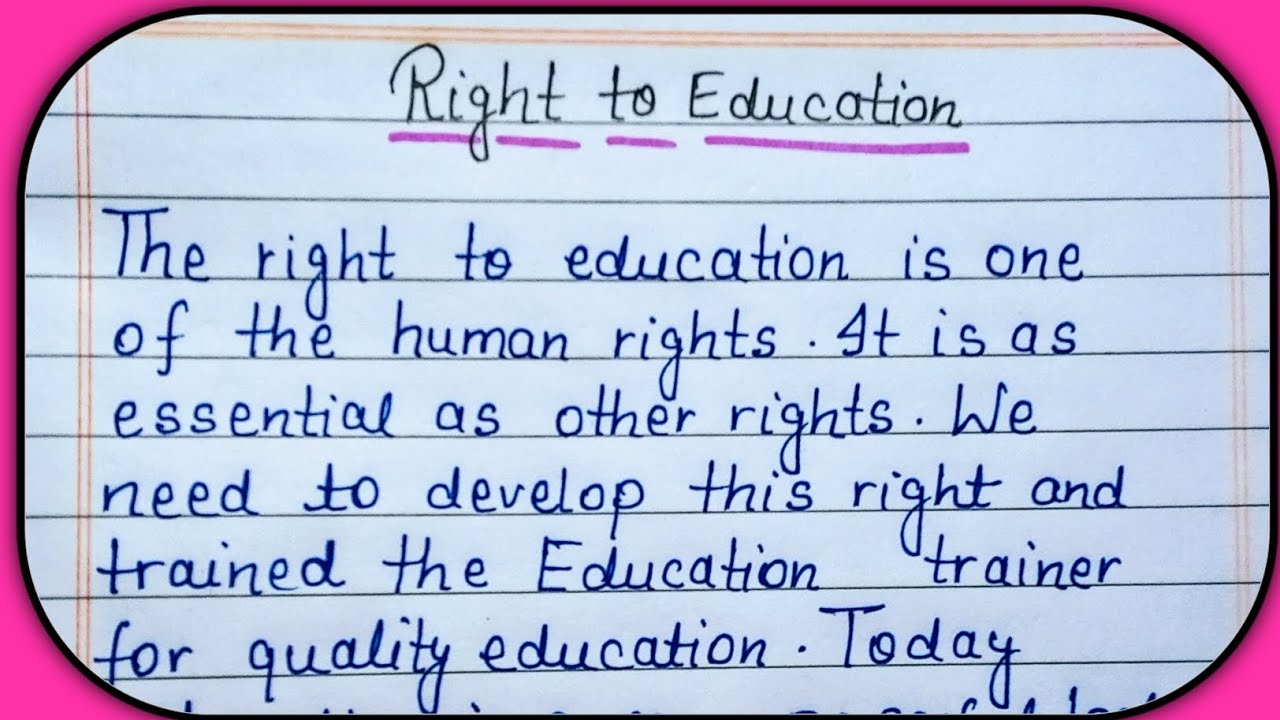 Right to Education
The right to education is one
of the human rights. It is as
essential as other rights. We
need to develop this right and
trained the Education trainer
for quality education. Today